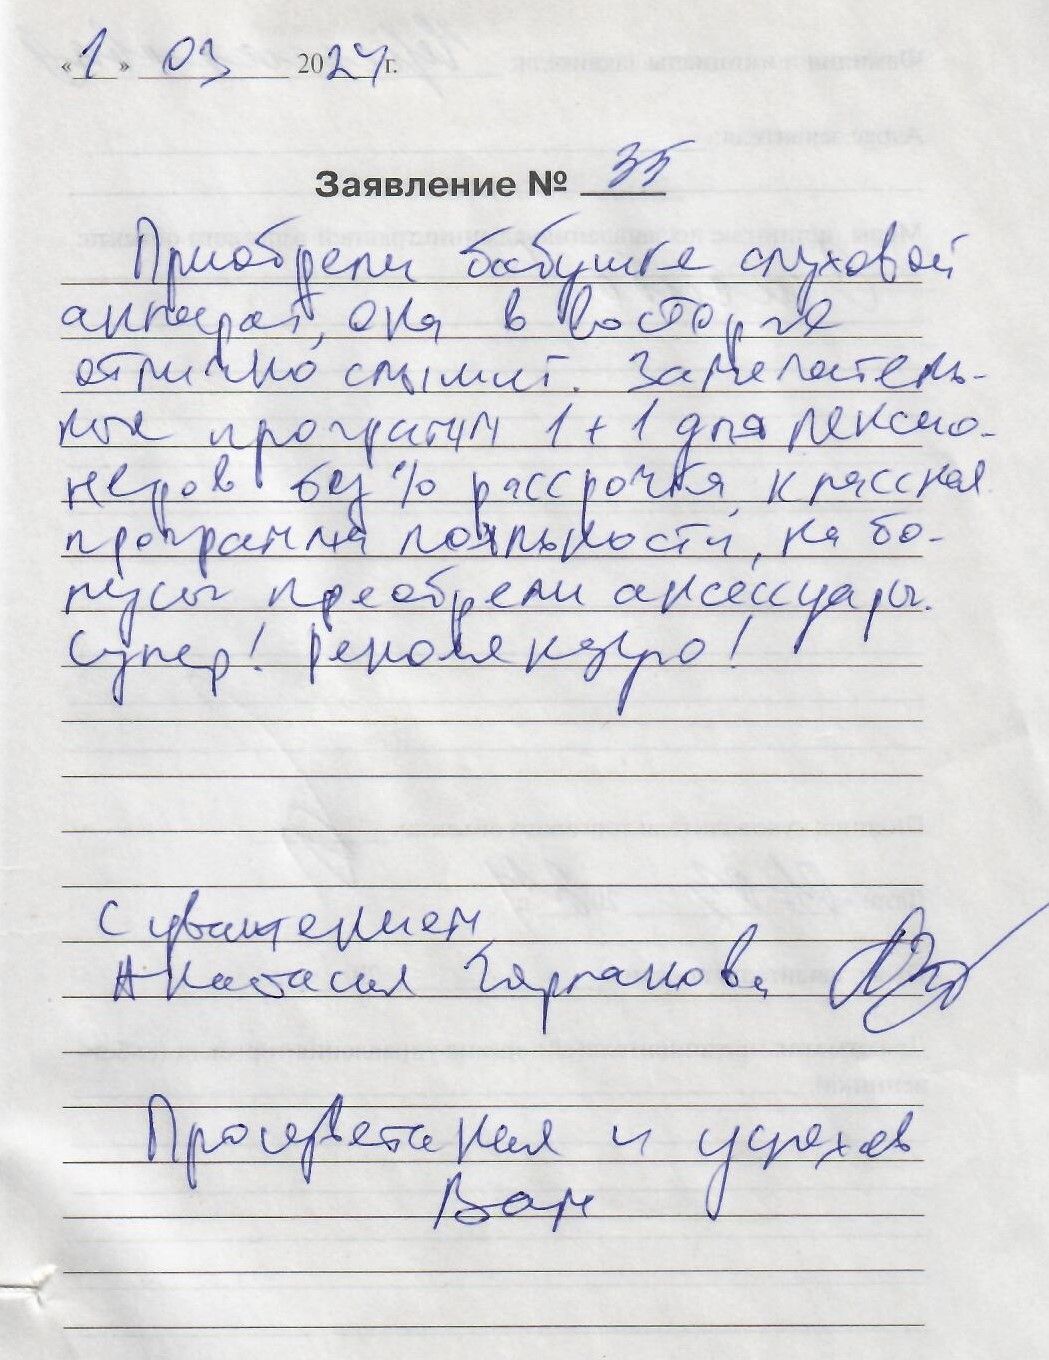 «1» 03 2024 г.
Заявление № 35
Приобрели бабушке слуховой
аппарат, она в восторге
отлично слышит. Замечатель-
ная программ 1+1 для пенсио-
неров без % рассрочка, классная
программа лояльности, на бо-
нусы преобрели аксессуары.
Супер! Рекомендую!
С уважением,
Анастасия
Процветания и успехов
Вам